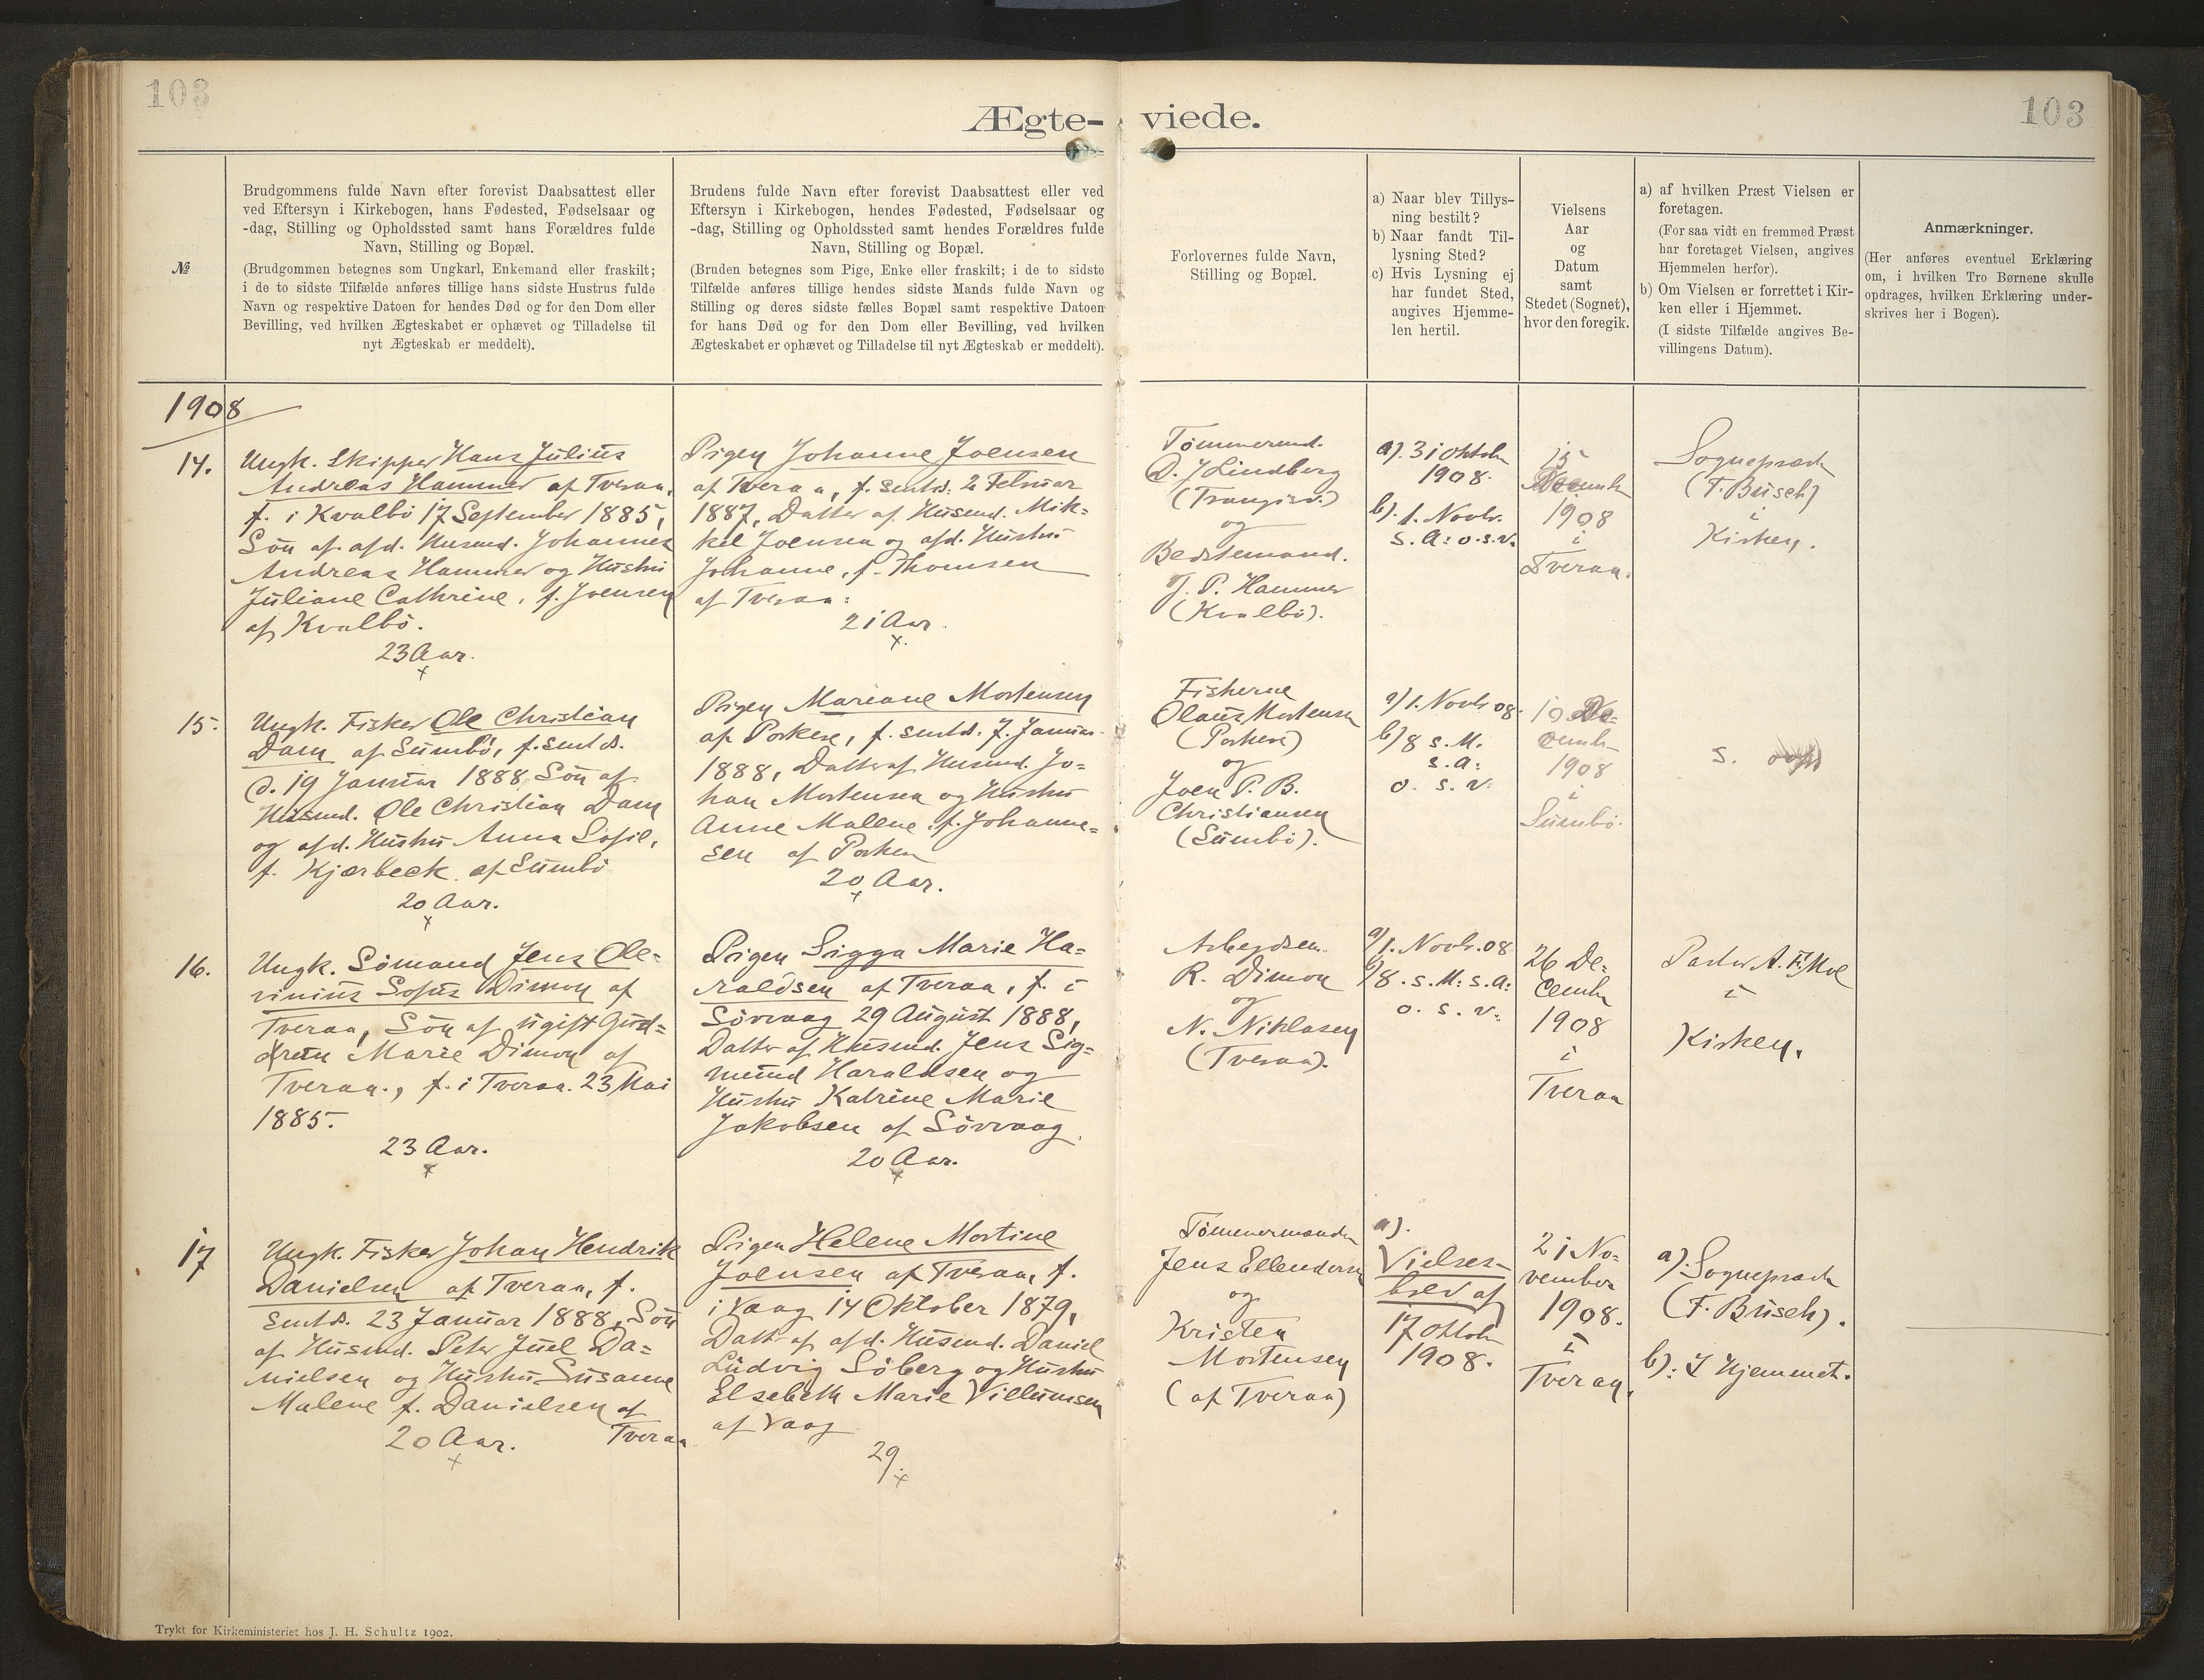 103
103
Ægte- viede.
№
Brudgommens fulde Navn efter forevist Daabsattest eller
ved Eftersyn i Kirkebogen, hans Fødested, Fødselsaar og
-dag, Stilling og Opholdssted samt hans Forældres fulde
Navn, Stilling og Bopæl.
(Brudgommen betegnes som Ungkarl, Enkemand eller fraskilt;
i de to sidste Tilfælde anføres tillige hans sidste Hustrus fulde
Navn og respektive Datoen for hendes Død og for den Dom eller
Bevilling, ved hvilken Ægteskabet er ophævet og Tilladelse til
nyt Ægteskab er meddelt).
Brudens fulde Navn efter forevist Daabsattest eller ved
Eftersyn i Kirkebogen, hendes Fødested, Fødselsaar og
-dag, Stilling og Opholdssted samt hendes Forældres fulde
Navn, Stilling og Bopæl.
(Bruden betegnes som Pige, Enke eller fraskilt; i de to sidste
Tilfælde anføres tillige hendes sidste Mands fulde Navn og
Stilling og deres sidste fælles Bopæl samt respektive Datoen
for hans Død og for den Dom eller Bevilling, ved hvilken
Ægteskabet er ophævet og Tilladelse til nyt Ægteskab er meddelt).
Forlovernes fulde Navn,
Stilling og Bopæl.
a) Naar blev Tillys-
ning bestilt?
b) Naar fandt Til-
lysning Sted?
c) Hvis Lysning ej
har fundet Sted,
angives Hjemme-
len hertil.
Vielsens
Aar
og
Datum
samt
Stedet (Sognet),
hvor den foregik.
a) af hvilken Præst Vielsen er
foretagen.
(For saa vidt en fremmed Præst
har foretaget Vielsen, angives
Hjemmelen herfor).
b) Om Vielsen er forrettet i Kir-
ken eller i Hjemmet.
(I sidste Tilfælde angives Be-
villingens Datum).
Anmærkninger.
(Her anføres eventuel Erklæring
om, i hvilken Tro Børnene skulle
opdrages, hvilken Erklæring under-
skrives her i Bogen).
1908
14.
Ungk. Skipper Hans Julius
Andreas Hammer af Tveraa,
f. i Kvalbö 17 September 1885,
Sön af afd. Husmd. Johannes
Andreas Hammer og Hustru
Juliane Cathrine, f. Joensen
af Kvalbö.
23 Aar.
x
Pigen Johanne Joensen
af Tveraa, f. smtds. 2 Februar
1887, Datter af Husmd. Mik=
kel Joensen og afd. Hustru
Johanne, f. Thomsen
af Tveraa:
21 Aar.
x.
Tömmermd.
D. J Lindberg
(Trangisv.)
og
Bedstemand.
J. P. Hammer
(Kvalbö).
a). 31 Oktobr
1908.
b). 1. Novbr.
s. A: o.s.v.
15
Decembr
1908
i
Tveraa.
Sognepræst
(F. Busch)
i
Kirken.
15.
Ungk. Fisker Ole Christian
Dam af Sumbö, f. smtds.
d. 19 Januar 1888, Sön af
Husmd. Ole Christian Dam
og afd. Hustru Anna Sofie,
f. Kjærbeck af Sumbö
20 Aar.
x
Pigen Mariane Mortensen
af Porkere, f. smtds. 7. Januar
1888, Datter af Husmd. Jo=
han Mortensen og Hustru
Anne Malene f. Johanne=
sen af Porkere
20 Aar.
x
Fiskerne
Olaus Mortensen
(Porkere)
og
Joen P. B.
Christiansen
(Sumbö).
a) 1. Novbr 08.
b) 8 s. M.
s. A:
o. s. v.
10 De=
cembr
1908
i
Sumbö.
s.
16.
Ungk. Sömand Jens Ole=
vinius Sofus Dimon af
Tveraa, Sön af ugift Gud=
run Marie Dimon af
Tveraa., f. i Tveraa 23 Mai
1885.
23 Aar.
x
Pigen Sigga Marie Ha=
raldsen af Tveraa, f. i
Sörvaag 29 August 1888,
Datter af Husmd. Jens Sig=
mund Haraldsen og
Hustru Katrine Marie
Jakobsen af Sörvaag
20 Aar.
x
Arbejdsm.
R. Dimon
og
N. Niklasen
(Tveraa).
a) 1. Novbr. 08
b) 8. s. M: s. A:
o. s. v.
26 De=
cembr
1908
i
Tveraa
Pastor A. F.
i
Kirken.
17
Ungk. Fisker Johan Hendrik
Danielsen af Tveraa, f.
smtds. 23 Januar 1888, Sön
af Husmd. Peter Juel Da=
nielsen og Hustru Susanne
Malene f. Danielsen af
Tveraa
20 Aar.
x
Pigen Helene Mortine
Joensen af Tveraa, f.
i Vaag 14 Oktober 1879,
Datt. af afd. Husmd. Daniel
Ludvig Söberg og Hustru
Elsebeth Marie Villumsen
af Vaag
29.
x
Tömmermænd
Jens Ellendersen
og
Kristen
Mortensen
(af Tveraa)
a).
Vielses-
brev af
17 Oktobr
1908.
21 No=
vember
1908.
i
Tveraa.
a). Sognepræst
(F. Busch).
b): I Hjemmet.
Trykt for Kirkeministeriet hos J. H. Schultz 1902.